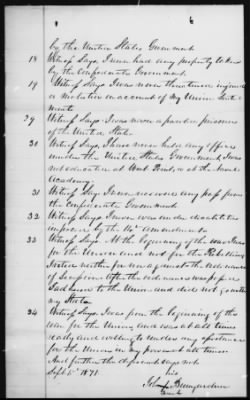 6
by the United States Government
18 Witness Says I never had any property taken
by the Confederate Government.
19 Witness Says I was never threatened injured
or molested on account of my Union Senti
ments
29 Witness Says I was never a parolee prisoner
of the United States.
30 Witness Says I have never held any office
under the United States Government I was
not educated at West Point or at the Naval
Academy.
31 Witness Says I never received any pass from
the Confederate Government.
32 Witness Says I am not under disabilities
imposed by the 14th amendment.
33 Witness Says. At the beginning of the war I was
for the Union and not for the Rebellion
I voted neither for nor against the ordinance
of Secession After the ordinance was passed
I adhered to the Union and did not go with
my State
34 Witness Says. I was from the beginning of the
war for the Union, and was at all times
ready and willing to under my
for the Union as my at all times
And further the deponent says not
Sept 5" 1871. his
John Bumgardner
mark